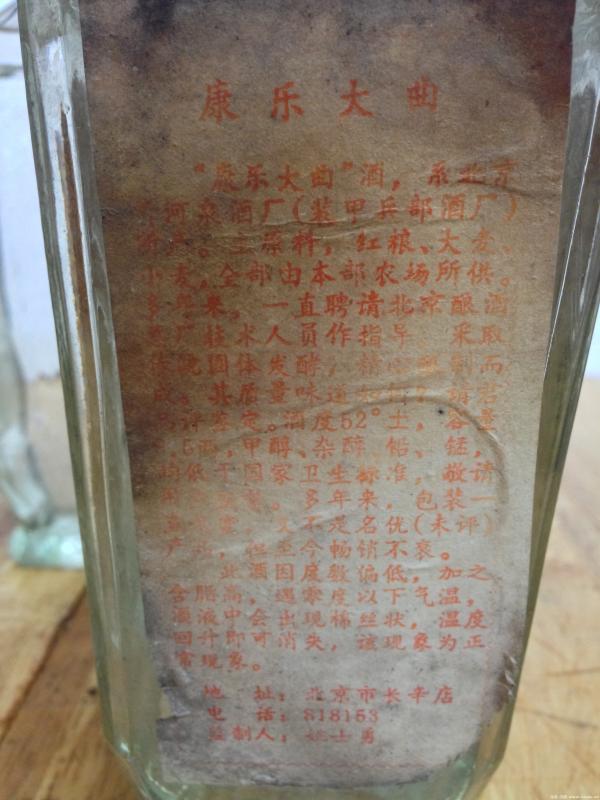 康乐大曲
"康乐大曲"酒，系北京
河泉酒厂(装甲兵部酒厂)
主原料，红粮、大麦、
小麦，全部由本部农场所供。
多年来。一直聘请北京酿酒
厂技术人员作指导，采取
固体发酵，精 制而
成。其质量味道
鉴定。酒度52°士，容量
甲醇、杂醇、铅、锰，
均低于国家卫生标准，敬请
多年来，包装一
又不是名优(未评)
产品，但至今畅销不衰。
此酒因度数偏低，加之
含脂高，遇零度以下气温，
酒液中会出现稀丝状，温度
回升即可消失，该现象为正
常现象。
地 址：北京市长辛店
电 话：818153
监制人：姚士勇